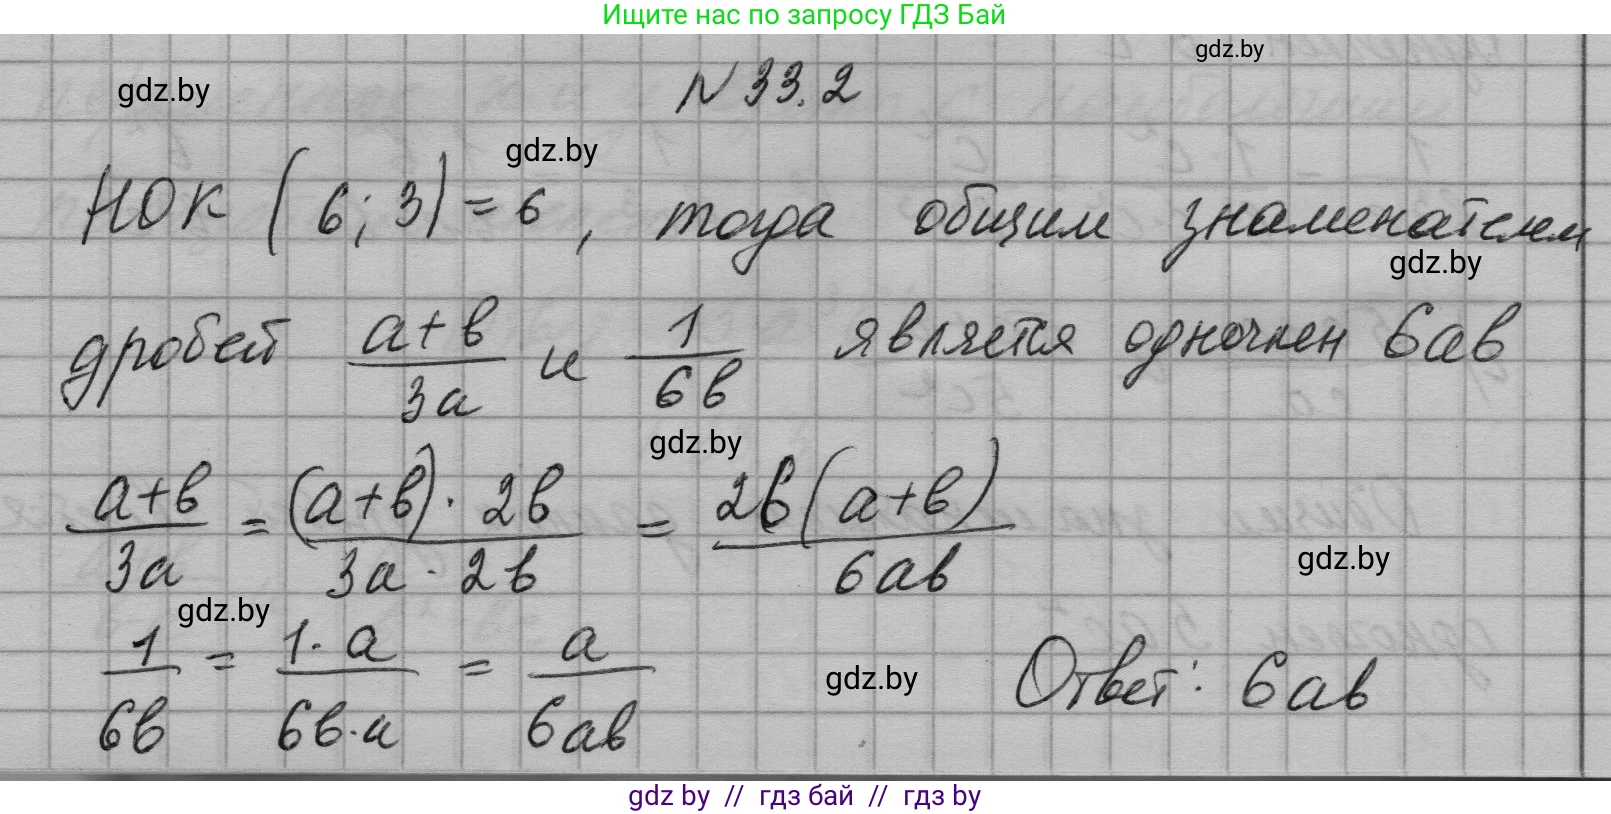 Ищите нас по запросу ГДЗ Бай
gdz.by
gdz.by
N 33.2
gdz.by
НОК (6; 3) = 6, тогда общим знаменателем
gdz.by
дробей (a+b)/(3a) и 1/(6b) является одночлен 6ab
gdz.by
(a+b)/(3a) = ((a+b)·2b)/(3a·2b) = (2b(a+b))/(6ab)
gdz.by
gdz.by
1/(6b) = (1·a)/(6b·a) = a/(6ab)
gdz.by
Ответ: 6ab
gdz by // гдз бай // гдз by